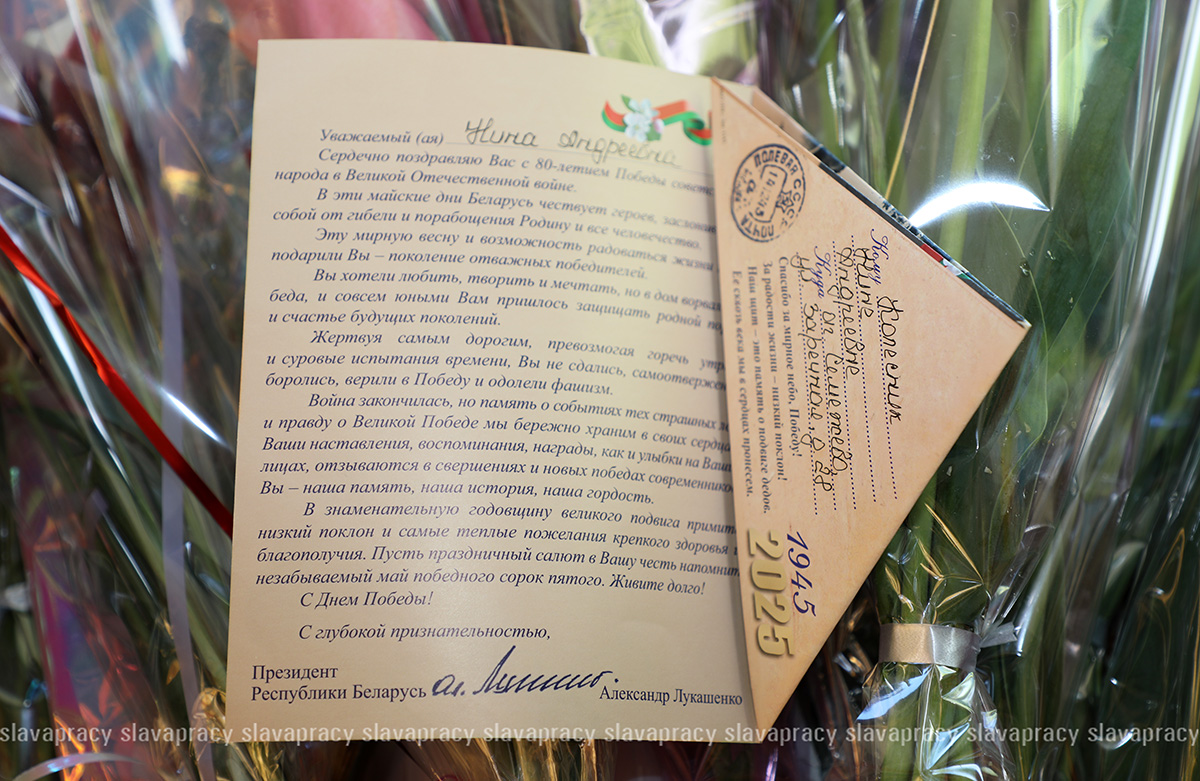 Уважаемый (ая) Нина Андреевна
Сердечно поздравляю Вас с 80-летием Победы советс
народа в Великой Отечественной войне.
В эти майские дни Беларусь чествует героев, заслонив
собой от гибели и порабощения Родину и все человечество.
Эту мирную весну и возможность радоваться жизни
подарили Вы – поколение отважных победителей.
Вы хотели любить, творить и мечтать, но в дом ворвал
беда, и совсем юными Вам пришлось защищать родной
и счастье будущих поколений.
Жертвуя самым дорогим, превозмогая горечь утр
и суровые испытания времени, Вы не сдались, самоотвержен
боролись, верили в Победу и одолели фашизм.
Война закончилась, но память о событиях тех страшных
и правду о Великой Победе мы бережно храним в своих сердца
Ваши наставления, воспоминания, награды, как и улыбки на Ваш
лицах, отзываются в свершениях и новых победах современнико
Вы – наша память, наша история, наша гордость.
В знаменательную годовщину великого подвига примит
низкий поклон и самые теплые пожелания крепкого здоровья
благополучия. Пусть праздничный салют в Вашу честь напомнит
незабываемый май победного сорок пятого. Живите долго!
С Днем Победы!
С глубокой признательностью,
Президент
Республики Беларусь
Александр Лукашенко
ПОЛЕВАЯ
ПОЧТА
СССР
Кому Колесник
Нине
Андреевне
Куда аг Семежево
ул Заречная, д 28
Спасибо за мирное небо, Победу!
За радости жизни – низкий поклон!
Наш щит – это память о подвиге дедов.
Ее сквозь века мы в сердцах пронесем.
1945
2025
slavapracy slavapracy slavapracy slavapracy slavapracy slavapracy slavapracy slavapracy slavapracy slavapracy